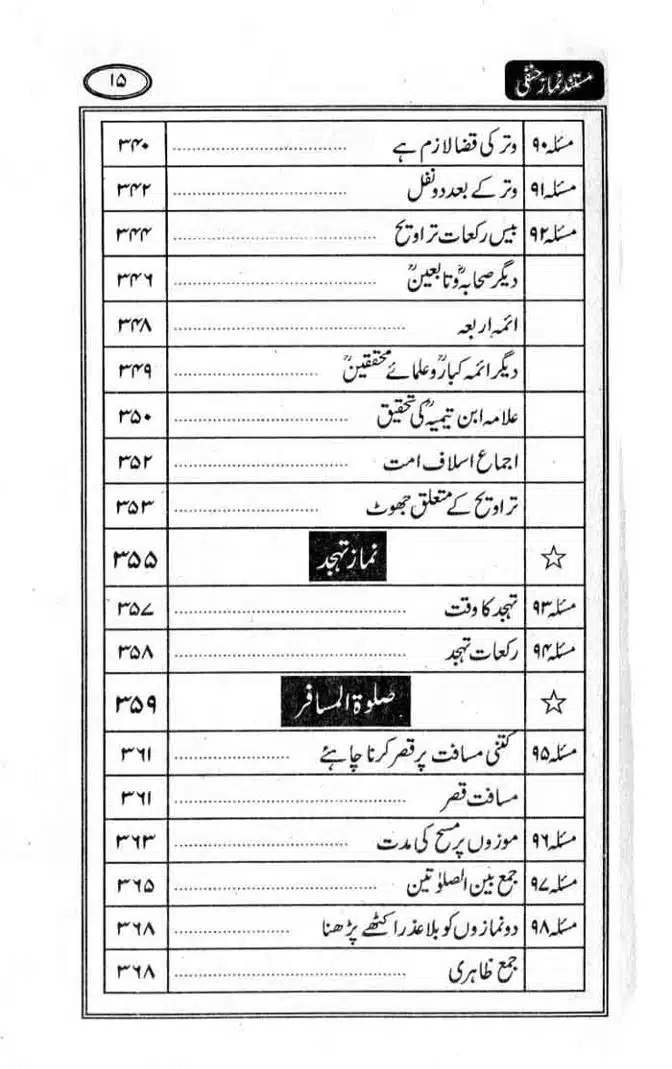 مستند نماز حنفی ۱۵
مسئلہ ۹۰ وتر کی قضا لازم ہے ........ ۳۴۰
مسئلہ ۹۱ وتر کے بعد دو نفل ........ ۳۴۲
مسئلہ ۹۲ بیس رکعات تراویح ........ ۳۴۴
دیگر صحابہؓ و تابعینؒ ........ ۳۴۶
ائمہ اربعہ ........ ۳۴۸
دیگر ائمہ کبارؒ و علمائے محققینؒ ........ ۳۴۹
علامہ ابن تیمیہؒ کی تحقیق ........ ۳۵۰
اجماع اسلاف امت ........ ۳۵۲
تراویح کے متعلق جھوٹ ........ ۳۵۳
☆ نماز تہجد ۳۵۵
مسئلہ ۹۳ تہجد کا وقت ........ ۳۵۷
مسئلہ ۹۴ رکعات تہجد ........ ۳۵۸
☆ صلوۃ المسافر ۳۵۹
مسئلہ ۹۵ کتنی مسافت پر قصر کرنا چاہئے ........ ۳۶۱
مسافت قصر ........ ۳۶۱
مسئلہ ۹۶ موزوں پر مسح کی مدت ........ ۳۶۳
مسئلہ ۹۷ جمع بین الصلوٰتین ........ ۳۶۵
مسئلہ ۹۸ دو نمازوں کو بلا عذر اکٹھے پڑھنا ........ ۳۶۸
جمع ظاہری ........ ۳۶۸